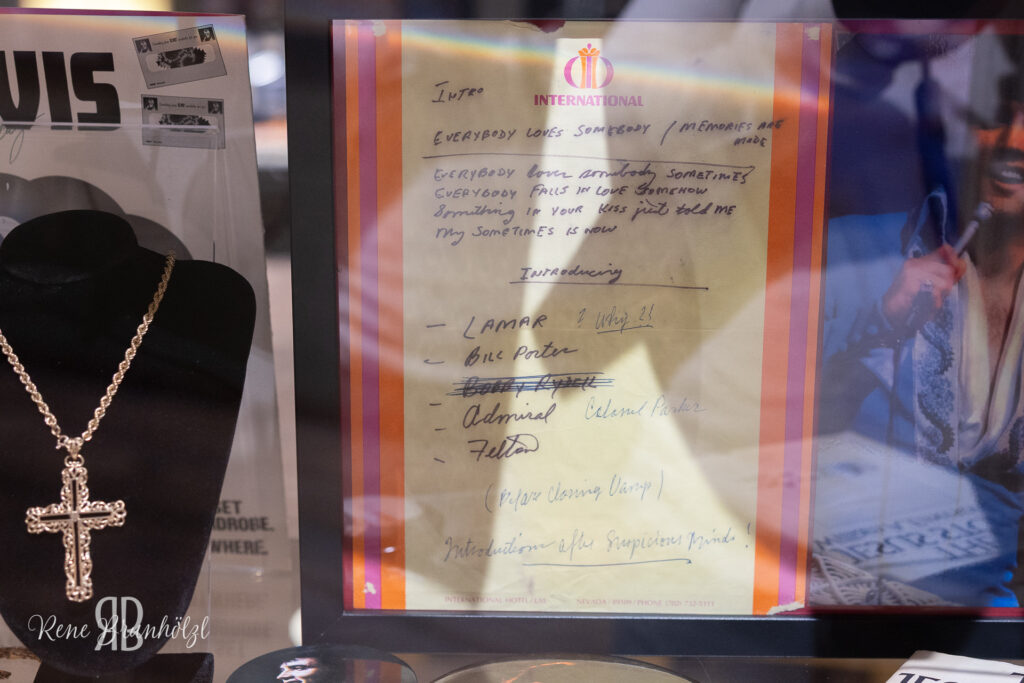 VIS
INTERNATIONAL
INTRO
EVERYBODY LOVES SOMEBODY / MEMORIES ARE
MADE
EVERYBODY loves somebody SOMETIMES
EVERYBODY FALLS IN LOVE SOMEHOW
Something IN YOUR KISS just told ME
My SOMETIMES IS NOW
INTRODUCING
– LAMAR ? Why ?!
– BILL Porter
BOBBY RYDELL
– Admiral Colonel Parker
– Felton
(Before Closing Vamp)
Introductions after Suspicious Minds!
INTERNATIONAL HOTEL / LAS
NEVADA / 89109 / PHONE (702) 732-5111
GET
WARDROBE.
WHERE.
Rene Branhölzl
RB